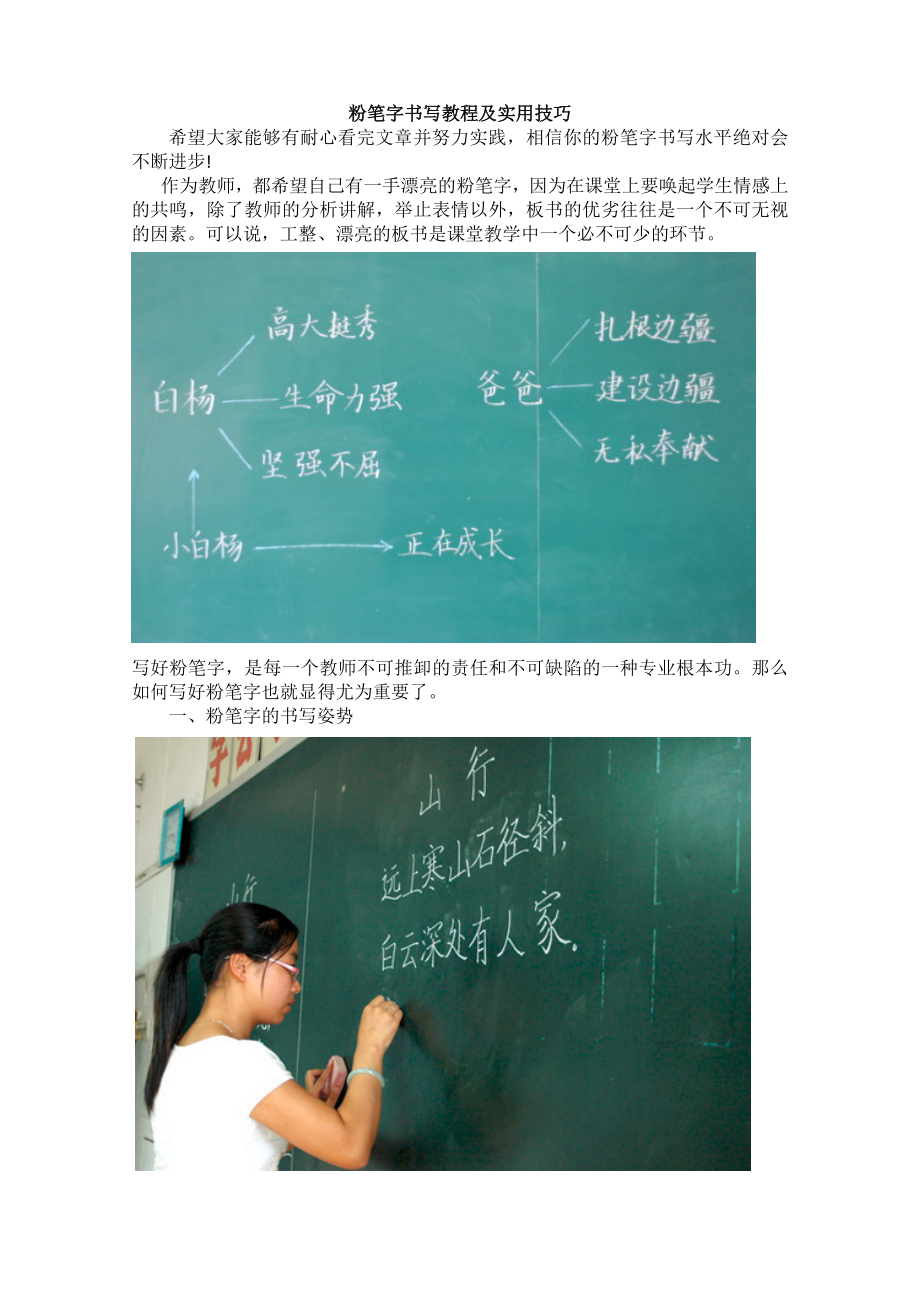 粉笔字书写教程及实用技巧
希望大家能够有耐心看完文章并努力实践，相信你的粉笔字书写水平绝对会
不断进步!
作为教师，都希望自己有一手漂亮的粉笔字，因为在课堂上要唤起学生情感上
的共鸣，除了教师的分析讲解，举止表情以外，板书的优劣往往是一个不可无视
的因素。可以说，工整、漂亮的板书是课堂教学中一个必不可少的环节。
高大挺秀
白杨
生命力强
坚强不屈
小白杨
正在成长
爸爸
扎根边疆
建设边疆
无私奉献
写好粉笔字，是每一个教师不可推卸的责任和不可缺陷的一种专业根本功。那么
如何写好粉笔字也就显得尤为重要了。
一、粉笔字的书写姿势
山行
远上寒山石径斜,
白云深处有人家。
山行